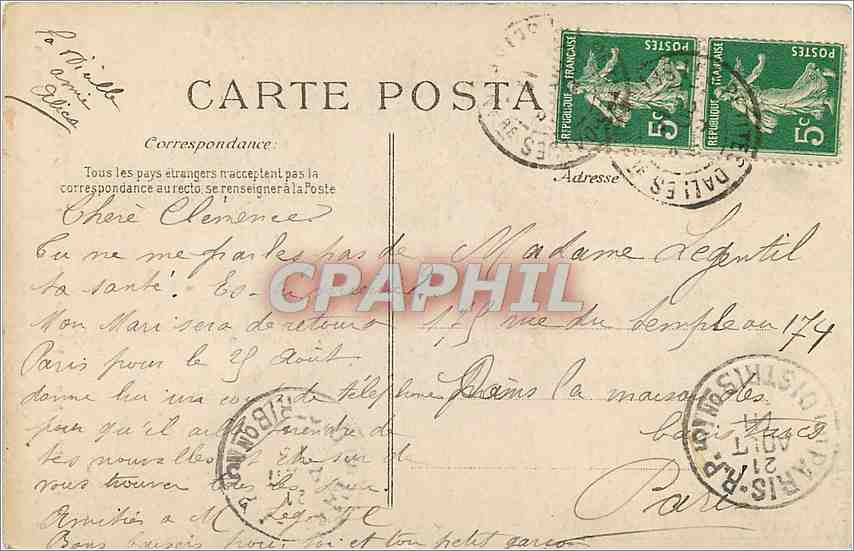 La Vieille
amie
Alice
CARTE POSTA
Correspondance:
Tous les pays étrangers n'acceptent pas la
correspondance au recto, se renseigner à la Poste
Adresse
REPUBLIQUE FRANÇAISE
POSTES
5c
REPUBLIQUE FRANÇAISE
POSTES
5c
Chère Clémence
Tu ne me parles pas de
ta santé.
Mon Mari sera de retour à
Paris pour le 25 Août
donne lui un coup de téléphone
pour qu'il aille prendre de
tes nouvelles et être sur de
vous trouver tous les
Amitiés à M Legentil
Bons baisers pour toi et ton petit garçon
Madame Legentil
rue du Temple au 174
Dans la maison des
Paris
CPAPHIL
PARIS R.P.
DISTRIBUTION
21
AOUT